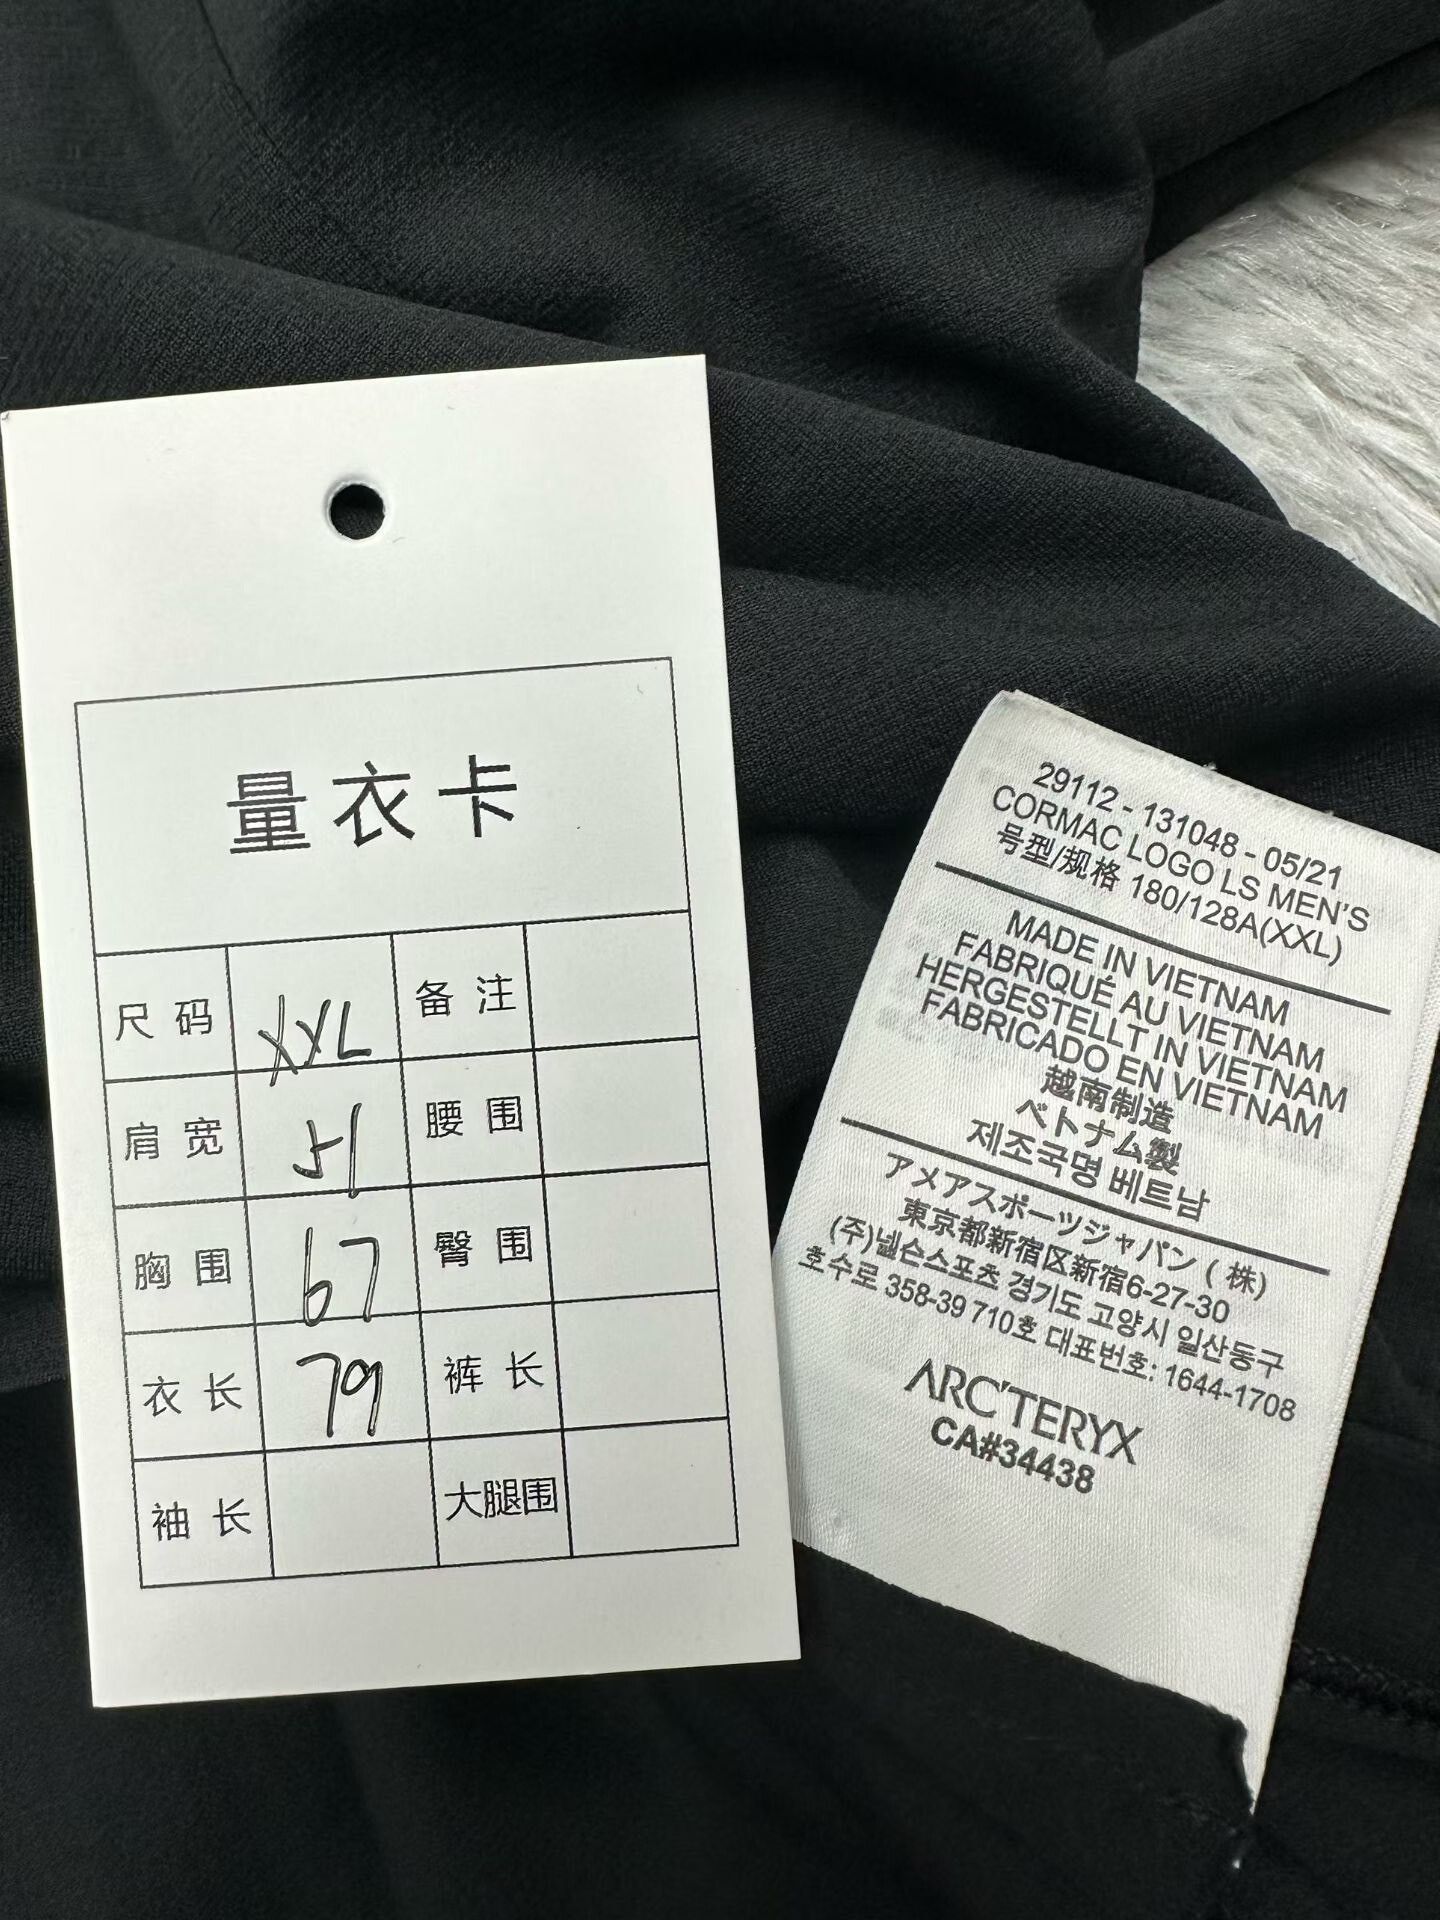 量衣卡
尺码 XXL 备注
肩宽 51 腰围
胸围 67 臀围
衣长 79 裤长
袖长 大腿围
29112 - 131048 - 05/21
CORMAC LOGO LS MEN'S
号型/规格 180/128A(XXL)
MADE IN VIETNAM
FABRIQUÉ AU VIETNAM
HERGESTELLT IN VIETNAM
FABRICADO EN VIETNAM
越南制造
ベトナム製
제조국명 베트남
アメアスポーツジャパン ( 株)
東京都新宿区新宿6-27-30
(주)넬슨스포츠 경기도 고양시 일산동구
호수로 358-39 710호 대표번호: 1644-1708
ARC'TERYX
CA#34438